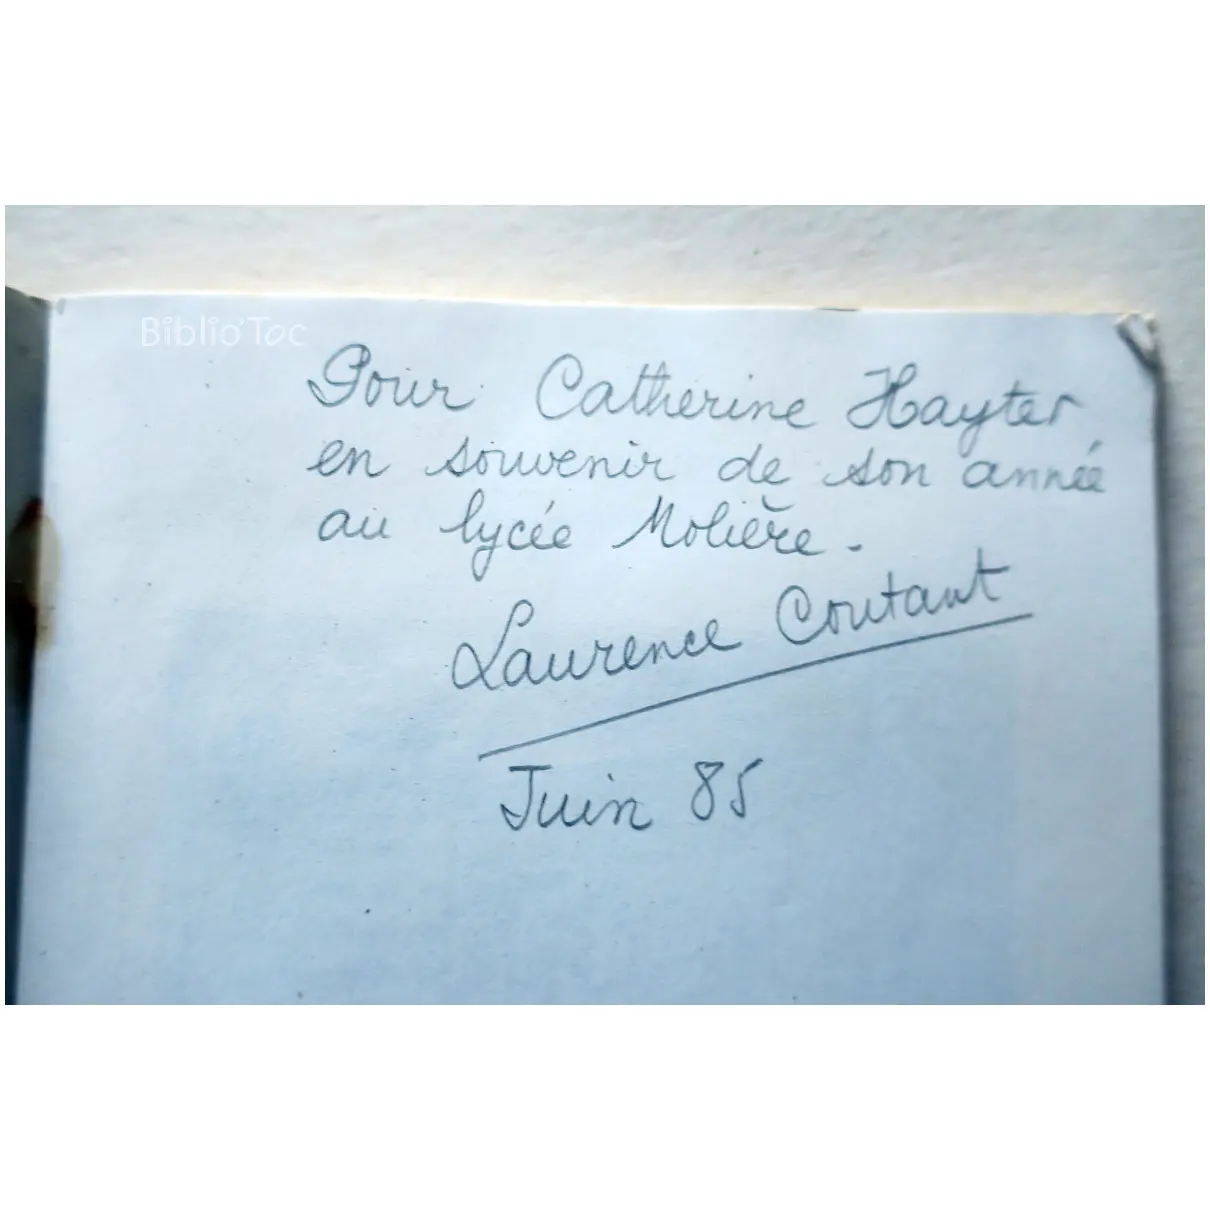 Biblio'Toc
Pour Catherine Hayter
en souvenir de son année
au lycée Molière.
Laurence Coutant
Juin 85